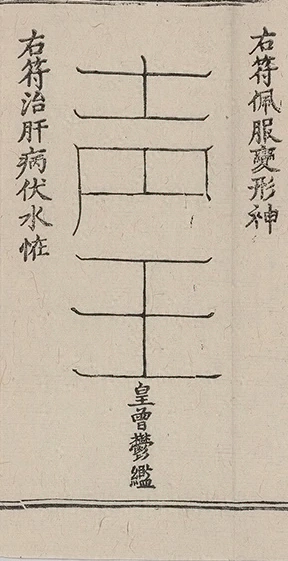 右符佩服變形神
皇曾鬱鑑
右符治肝病伏水恠